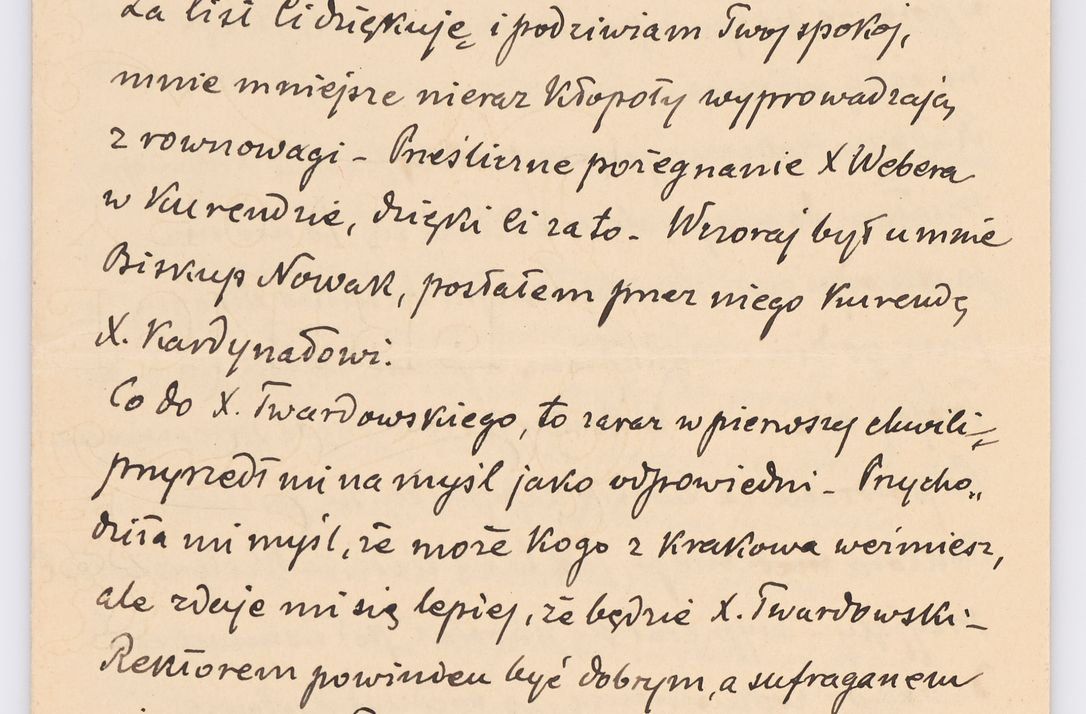 Za list Ci dziękuję i podziwiam Twój spokój,
mnie mniejsze nieraz kłopoty wyprowadzają
z rownowagi - Prześliczne pożegnanie X Webera
w Kurendzie, dzięki Ci za to - Wczoraj był u mnie
Biskup Nowak, posłałem przez niego Kurendę
X. Kardynałowi.
Co do X. Twardowskiego, to zaraz w pierwszej chwili
przyszedł mi na myśl jako odpowiedni - Przycho„
dziła mi myśl, że może kogo z Krakowa weźmiesz,
ale zdaje mi się lepiej, że będzie X. Twardowski -
Rektorem powinien być dobrym, a sufraganem